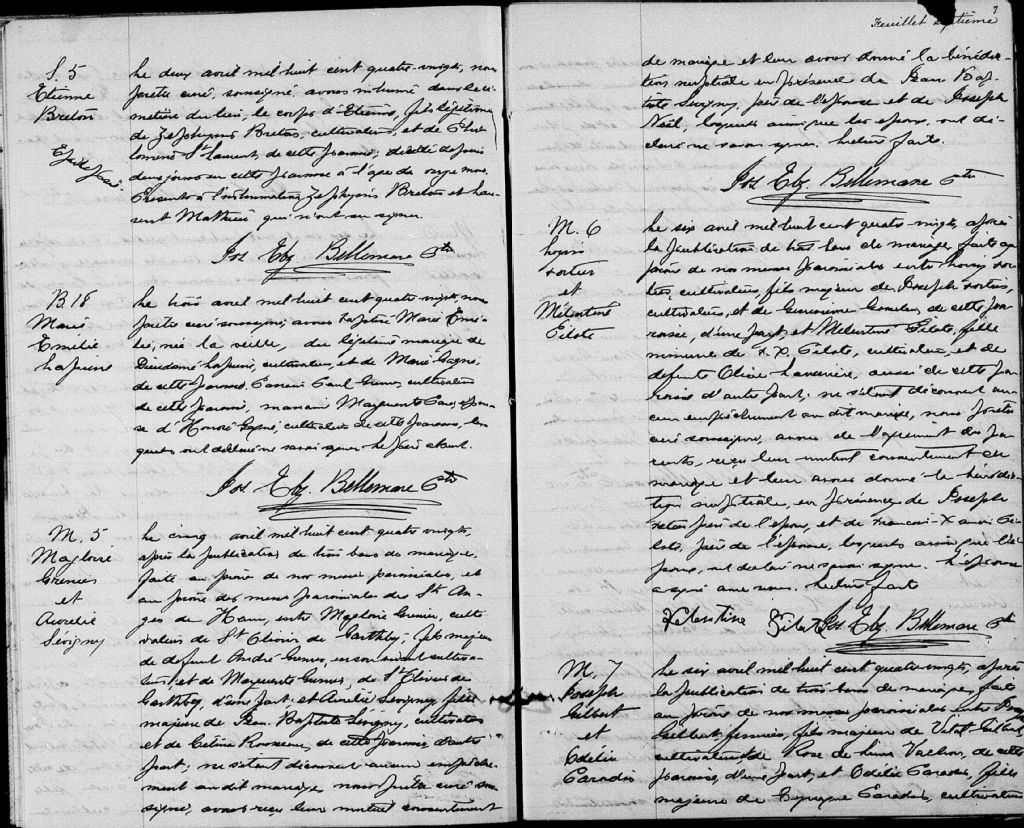 S. 5
Etienne
Breton
Le deux avril mil huit cent quatre-vingts, nous
prêtre curé, soussigné avons inhumé dans le ci-
metière du lieu, le corps d'Etienne, fils légitime
de Zephyrin Breton, cultivateur, et de Philo-
mène St Laurent, de cette paroisse, décédé depuis
deux jours en cette paroisse à l'age de onze mois.
Présents à l'inhumation Zephyrin Breton et
Mathieu qui n'ont su signer.
Jos. Elz. Bellemare Ptre
B. 18
Marie
Emilie
Le trois avril mil huit cent quatre-vingts, nous
prêtre curé soussigné, avons baptisé Marie Emi-
lie, née la veille, du légitime mariage de
Dieudonné cultivateur, et de Marie Gagné,
de cette paroisse. Parrain Paul cultivateur
de cette paroisse, marraine Marguerite epou-
se d'Honoré cultivateur de cette paroisse, les-
quels ont déclaré ne savoir signer. Le père absent.
Jos. Elz. Bellemare Ptre
M. 5
Magloire
Grenier
et
Aurélie
Sévigny
Le cinq avril mil huit cent quatre vingts,
après la publication de trois bans de mariage,
faite au prône de nos messes paroissiales, et
au prône des messes paroissiales des Sts An-
ges de Ham, entre Magloire Grenier, culti-
vateur de St Olivier de Garthby, fils majeur
de defunt André Grenier, en son vivant cultiva-
teur, et de Marguerite de St Olivier de
Garthby, d'une part, et Aurélie Sévigny fille
majeure de Jean Baptiste Sévigny, cultivateur
et de Celina Rousseau, de cette paroisse, d'autre
part; ne s'étant découvert aucun empêche-
ment au dit mariage nous prêtre curé sous-
signé, avons reçu leur mutuel consentement
7
Feuillet septième
de mariage et leur avons donné la bénédic-
tion nuptiale en présence de Jean Bap-
tiste Sévigny, père de l'épouse et de Joseph
Noël, lesquels ainsi que les epoux, ont dé-
claré ne savoir signer. Lecture faite.
Jos. Elz. Bellemare Ptre
M. 6
Fortier
et
Pilote
Le six avril mil huit cent quatre vingts, après
la publication de trois bans de mariage, faite au
prône de nos messes paroissiales entre
cultivateur fils majeur de Joseph Fortier,
cultivateur, et de Genevieve de cette pa-
roisse, d'une part, et Pilote, fille
mineure de F. X. Pilote, cultivateur, et de
defunte Olive aussi de cette pa-
roisse d'autre part; ne s'étant découvert au-
cun empêchement au dit mariage, nous prêtre
curé soussigné, avons de l'agrément des pa-
rents, reçu leur mutuel consentement de
mariage et leur avons donné la bénédic-
tion nuptiale, en présence de Joseph
père de l'époux, et de Francois-Xavier Pi-
lote, père de l'épouse, lesquels ainsi que l'é-
poux, ont déclaré ne savoir signer. L'épouse
a signé avec nous. Lecture faite
Pilote Jos. Elz. Bellemare Ptre
M. 7
Joseph
Gilbert
et
Odélie
Paradis
Le six avril mil huit cent quatre-vingts, après
la publication de trois bans de mariage, faite
au prône de nos messes paroissiales entre Joseph
Gilbert, fermier, fils majeur de Vital Gilbert,
cultivateur, de Rose de Lima Vachon, de cette
paroisse, d'une part, et Odélie Paradis, fille
majeure de Paradis, cultivateur